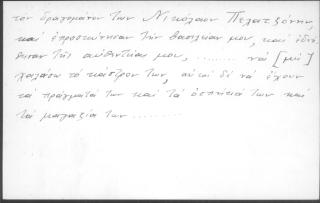 τον δραγομάνον των Νικόλαον Πελατζόνην,
και επροσκύνησαν την βασιλείαν μου, και εδέη-
θησαν της αυθεντείας μου, ........ να [μη]
χαλάσω το κάστρον των, αυτοί δε να έχουν
τα πράγματά των και τα οσπήτιά των και
τα μαγαζιά των ........